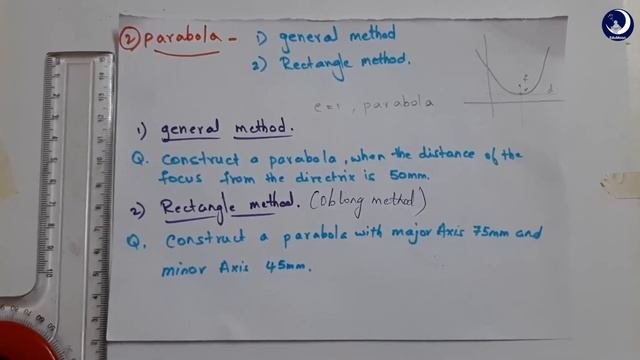 ② parabola - 1) general method
2) Rectangle method.
e=1, parabola
1) general method.
Q. construct a parabola, when the distance of the
focus from the directrix is 50mm.
2) Rectangle method. (Oblong method)
Q. construct a parabola with major Axis 75mm and
minor Axis 45mm.